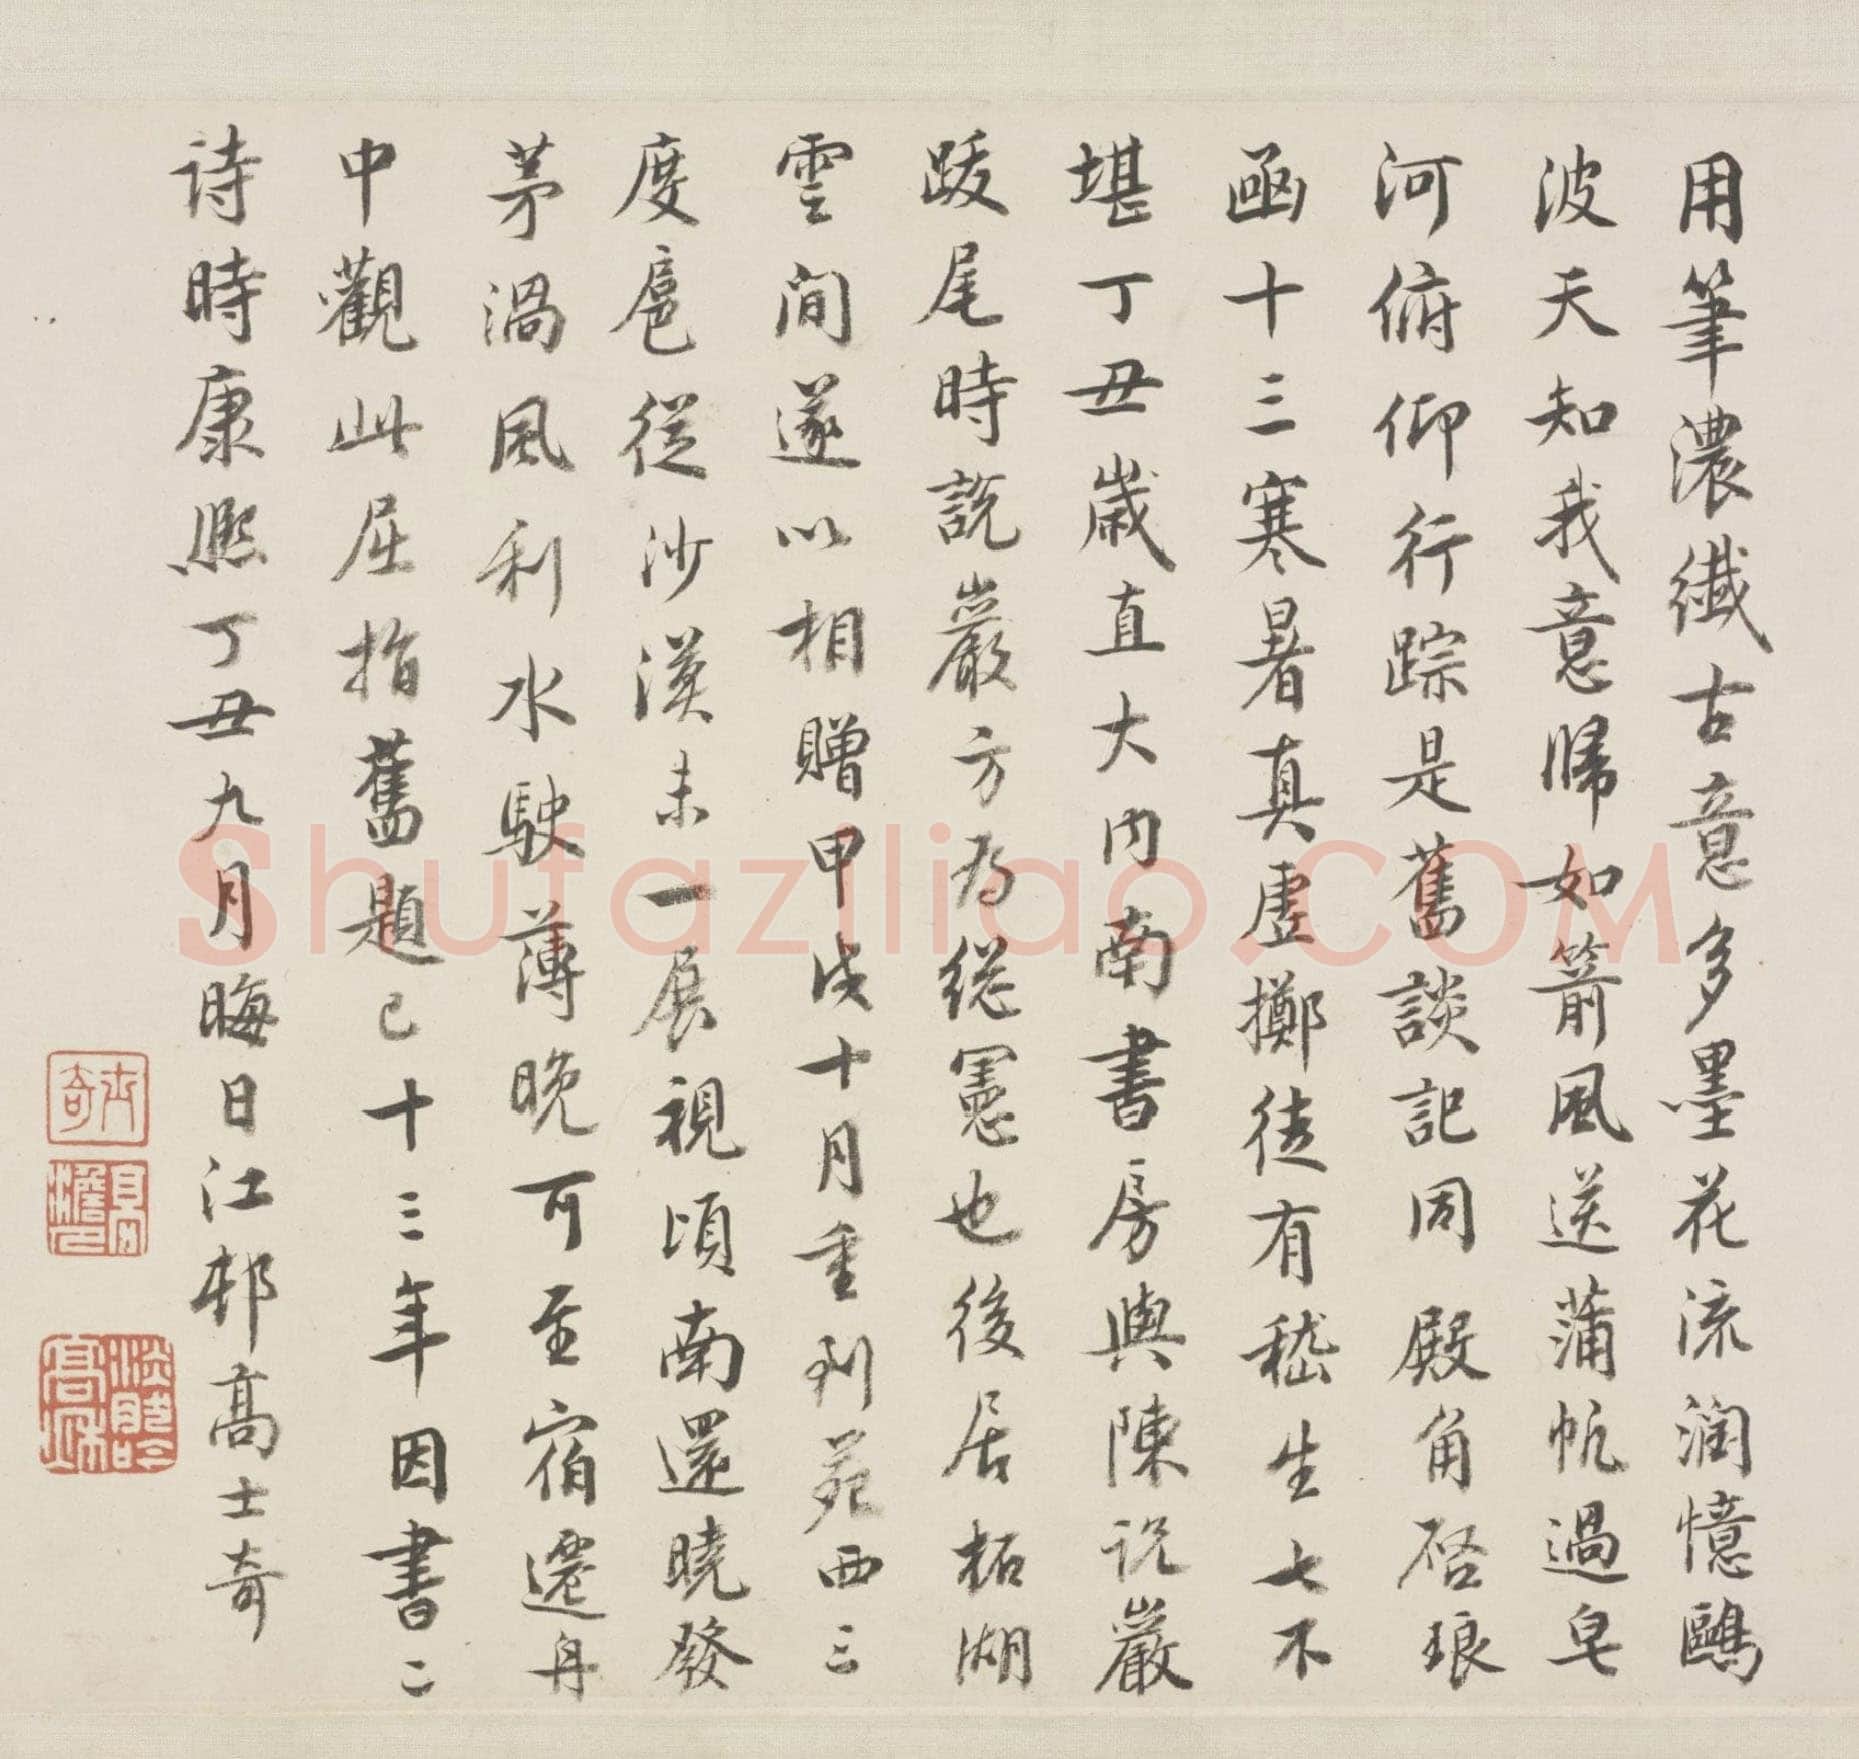 用筆濃纖古意多墨花流潤憶鷗
波天知我意歸如箭風送蒲帆過皂
河俯仰行踪是舊談記同殿角啓琅
函十三寒暑真虛擲徒有嵇生七不
堪丁丑歲直大内南書房與陳說巖
跋尾時說巖方為總憲也後居柘湖
雲間遂以相贈甲戌十月重到苑西三
度扈從沙漠未一展視頃南還曉發
茅渦風利水駛薄晚可至宿遷舟
中觀此屈指舊題已十三年因書二
詩時康熙丁丑九月晦日江邨高士奇
士奇
高澹人
Shufaziliao.COM